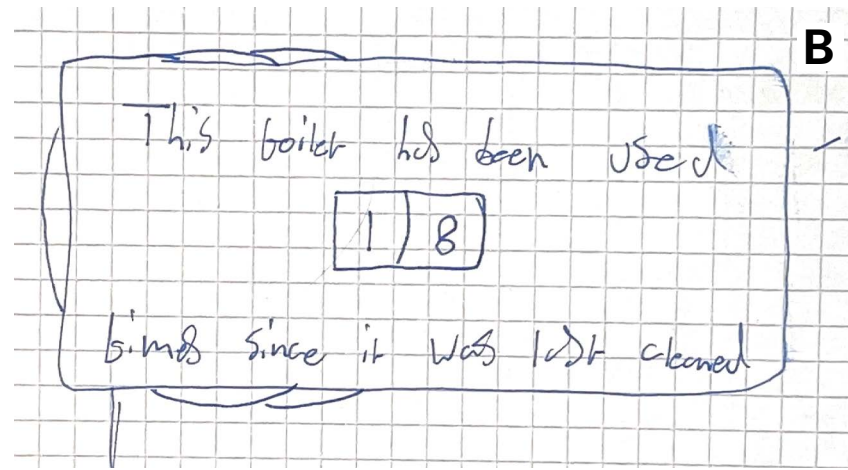 B
This boiler has been used
18
times since it was last cleaned